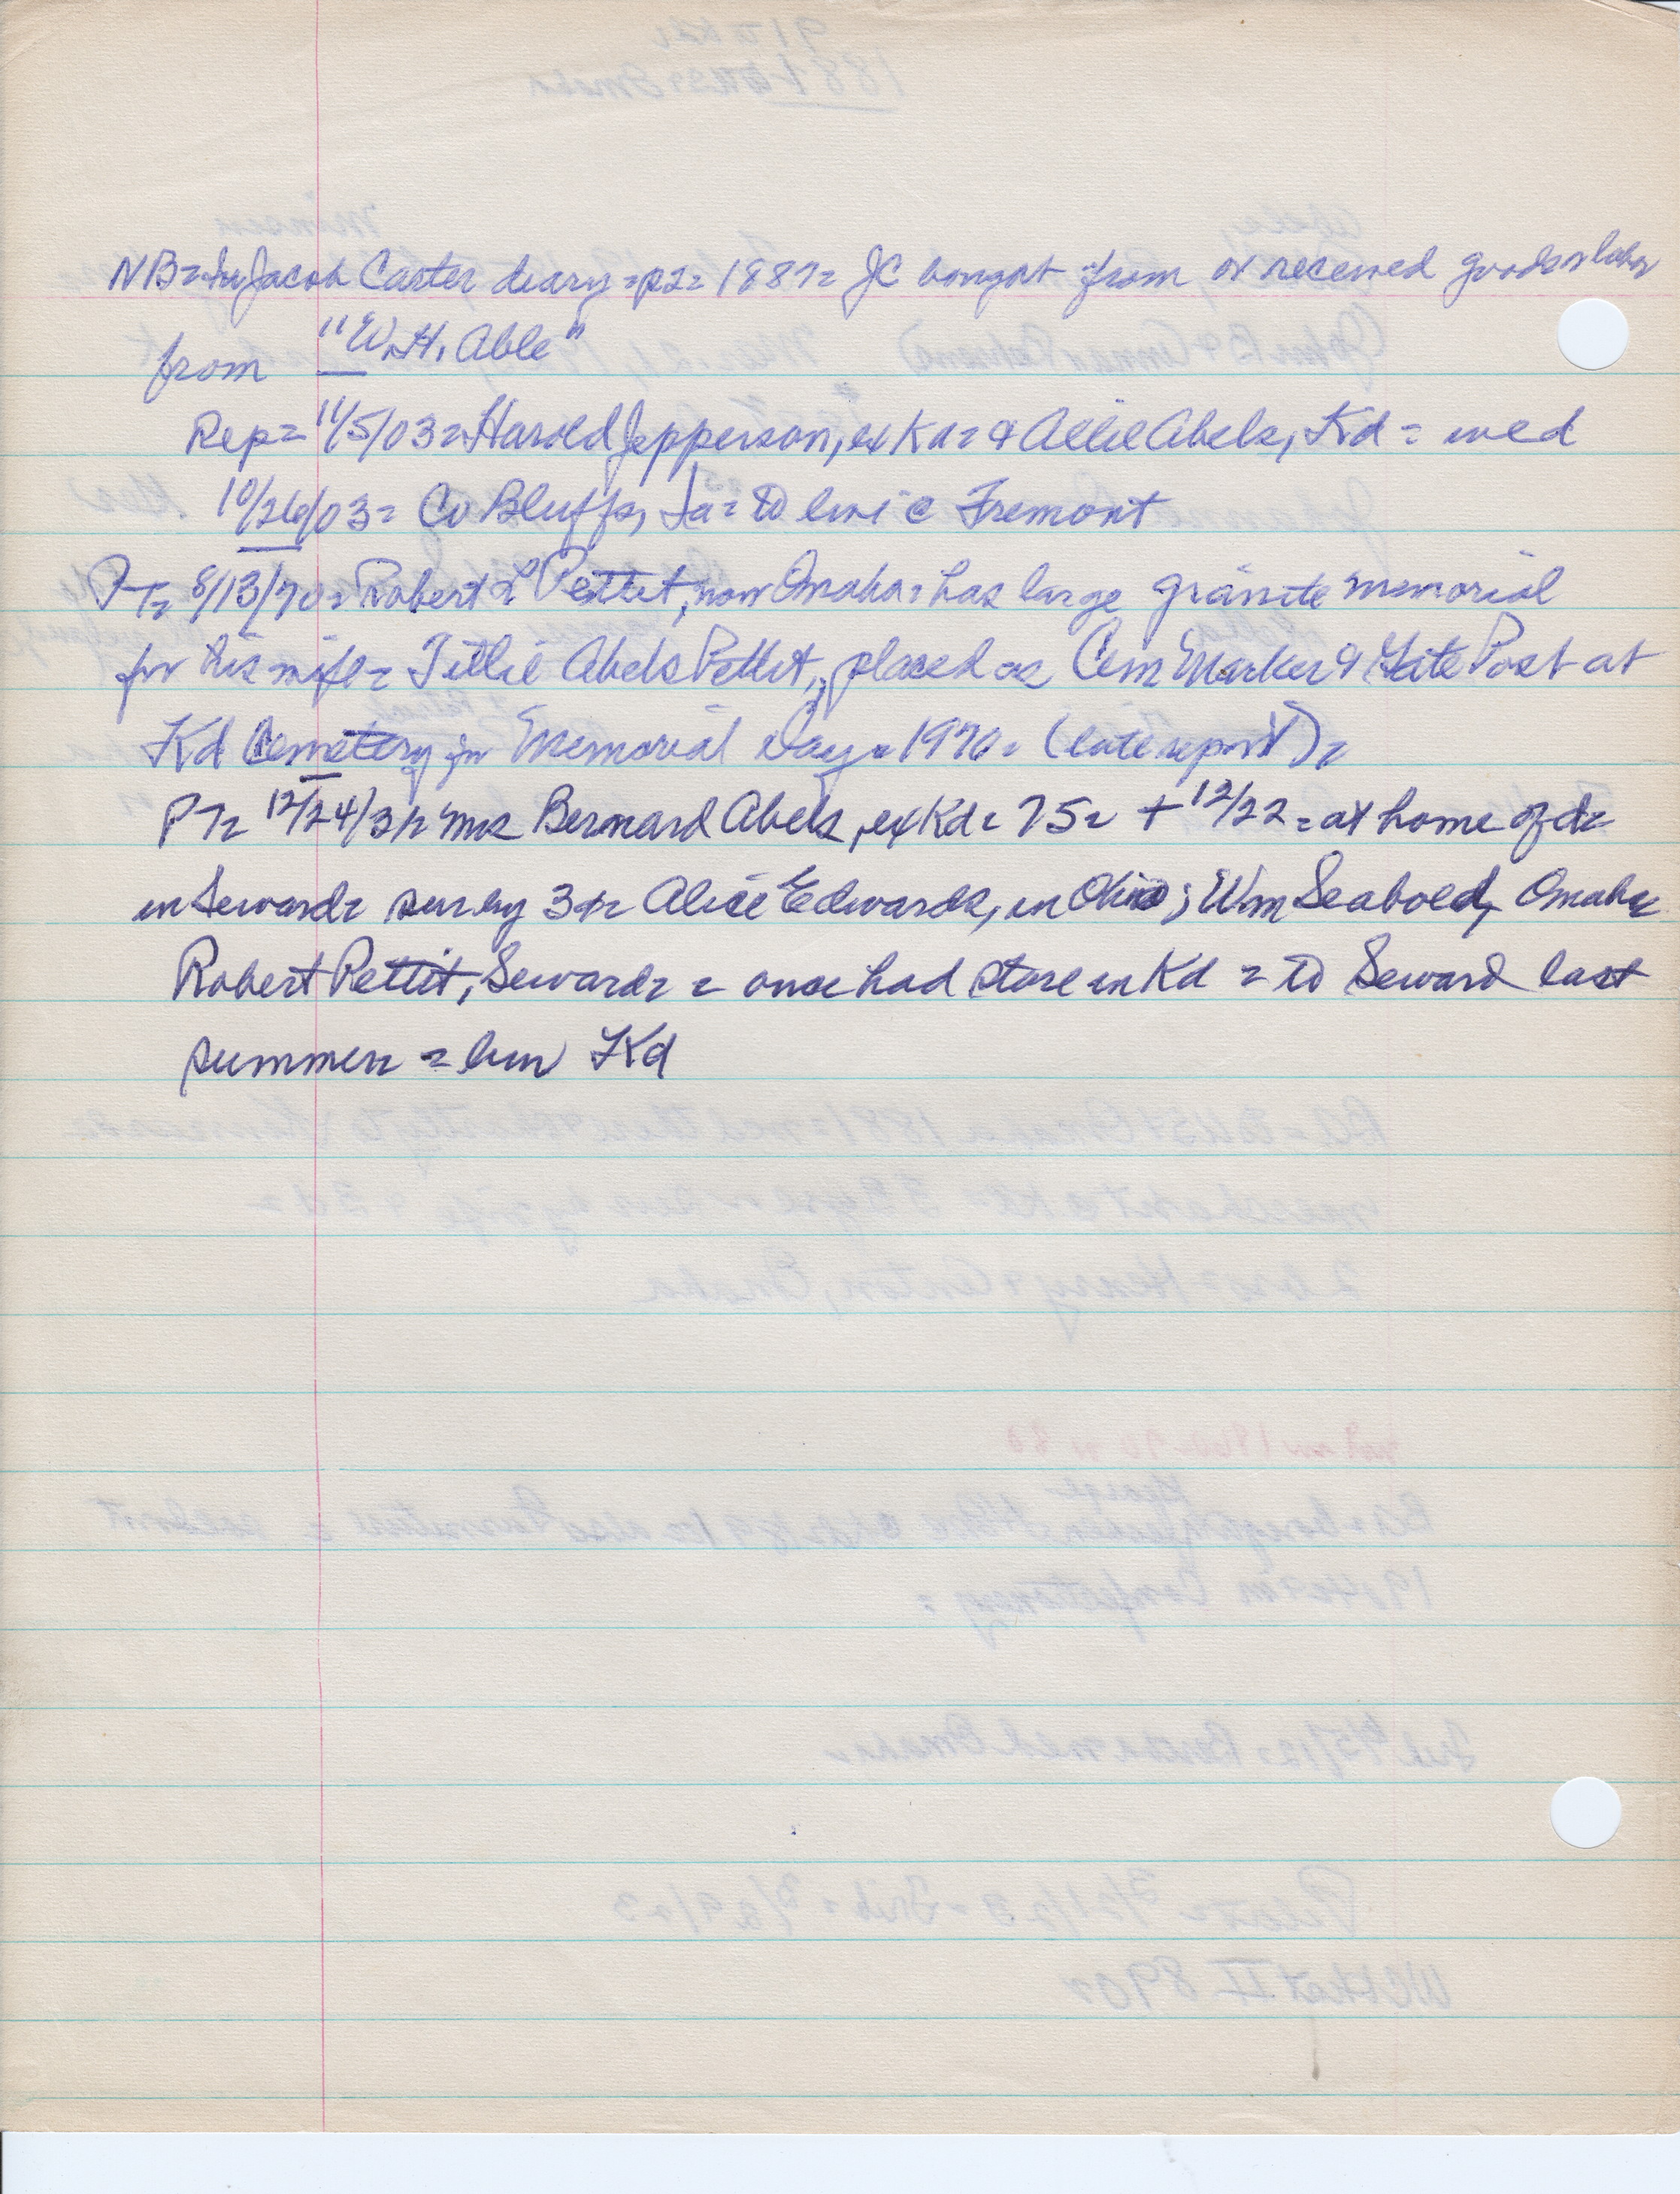 NB = In Jacob Carter diary = p2 = 1887 = JC bought from or received goods or labor
from "W.H. Able"
Rep = 11/5/03 = Harold Jepperson, ex Kd = & Allie Abels, Kd = wed
10/26/03 = Co Bluffs, Ia = to live c Fremont
PT = 8/13/70 = Robert L Pettit, now Omaha = has large granite memorial
for his wife = Tillie Abels Pettit, placed as Cem Marker & Gate Post at
Kd Cemetery for Memorial Day = 1970 = (late report) =
PT = 12/24/31 = Mrs Bernard Abels, ex Kd = 75 = + 12/22 = at home of d =
in Seward = surv by 3 d = Alice Edwards, in Ohio; Wm Seabold, Omaha
Robert Pettit, Seward = = once had store in Kd = to Seward last
summer = bur Kd